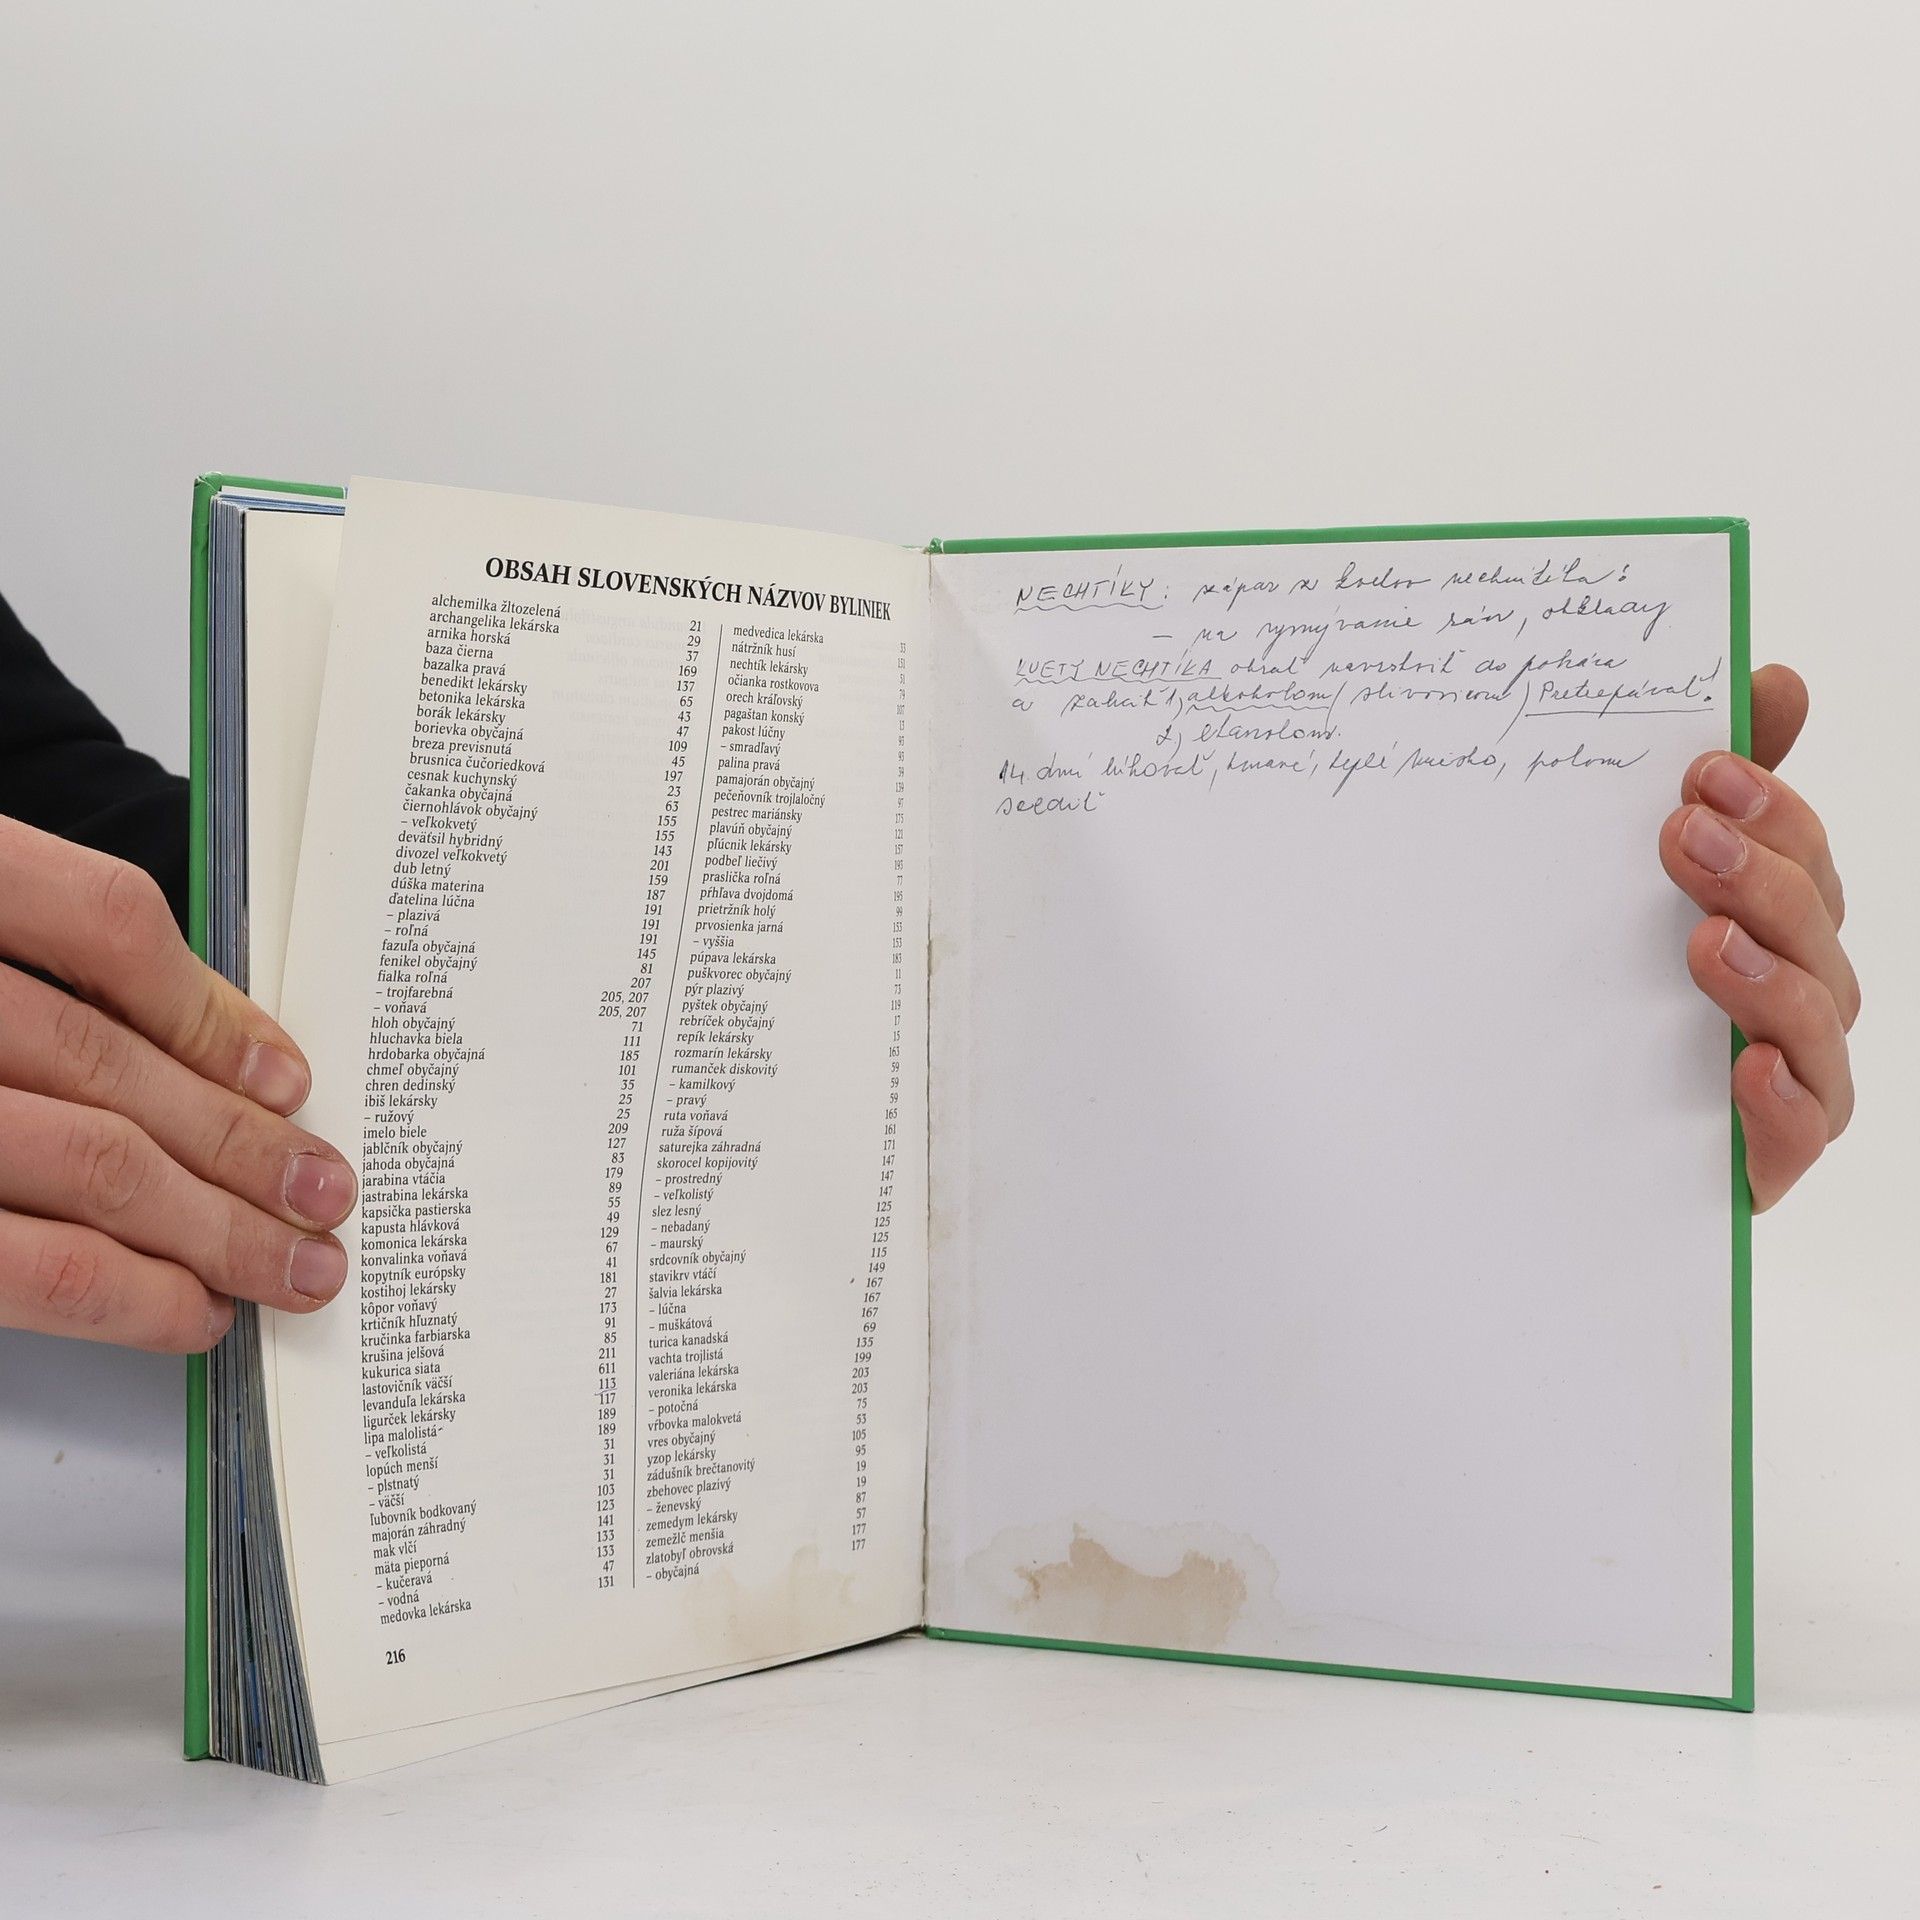 OBSAH SLOVENSKÝCH NÁZVOV BYLINIEK
alchemilka žltozelená
archangelika lekárska
arnika horská
baza čierna
bazalka pravá
benedikt lekársky
betonika lekárska
borák lekársky
borievka obyčajná
breza previsnutá
brusnica čučoriedková
cesnak kuchynský
čakanka obyčajná
čiernohlávok obyčajný
– veľkokvetý
deväťsil hybridný
divozel veľkokvetý
dub letný
dúška materina
ďatelina lúčna
– plazivá
– roľná
fazuľa obyčajná
fenikel obyčajný
fialka roľná
– trojfarebná
– voňavá
hloh obyčajný
hluchavka biela
hrdobarka obyčajná
chmeľ obyčajný
chren dedinský
ibiš lekársky
– ružový
imelo biele
jablčník obyčajný
jahoda obyčajná
jarabina vtáčia
jastrabina lekárska
kapsička pastierska
kapusta hlávková
komonica lekárska
konvalinka voňavá
kopytník európsky
kostihoj lekársky
kôpor voňavý
krtičník hľuznatý
kručinka farbiarska
krušina jelšová
kukurica siata
lastovičník väčší
levanduľa lekárska
ligurček lekársky
lipa malolistá
– veľkolistá
lopúch menší
– plstnatý
– väčší
ľubovník bodkovaný
majorán záhradný
mak vlčí
mäta pieporná
– kučeravá
– vodná
medovka lekárska
21
29
37
169
137
65
43
47
109
45
197
23
63
155
155
143
201
159
187
191
191
191
145
81
207
205, 207
205, 207
71
111
185
101
35
25
25
209
127
83
179
89
55
49
129
67
41
181
27
173
91
85
211
611
113
117
189
189
31
31
31
103
123
141
133
133
47
131
medvedica lekárska
nátržník husí
nechtík lekársky
očianka rostkovova
orech kráľovský
pagaštan konský
pakost lúčny
– smradľavý
palina pravá
pamajorán obyčajný
pečeňovník trojlaločný
pestrec mariánsky
plavúň obyčajný
pľúcnik lekársky
podbeľ liečivý
praslička roľná
pŕhľava dvojdomá
prietržník holý
prvosienka jarná
– vyššia
púpava lekárska
puškvorec obyčajný
pýr plazivý
pyštek obyčajný
rebríček obyčajný
repík lekársky
rozmarín lekársky
rumanček diskovitý
– kamilkový
– pravý
ruta voňavá
ruža šípová
saturejka záhradná
skorocel kopijovitý
– prostredný
– veľkolistý
slez lesný
– nebadaný
– maurský
srdcovník obyčajný
stavikrv vtáčí
šalvia lekárska
– lúčna
– muškátová
turica kanadská
vachta trojlistá
valeriána lekárska
veronika lekárska
– potočná
vŕbovka malokvetá
vres obyčajný
yzop lekársky
zádušník brečtanovitý
zbehovec plazivý
– ženevský
zemedym lekársky
zemežlč menšia
zlatobyľ obrovská
– obyčajná
33
151
51
79
107
13
93
93
39
139
97
175
121
157
193
77
195
99
153
153
183
11
73
119
17
15
163
59
59
59
165
161
171
147
147
147
125
125
125
115
149
167
167
167
69
135
199
203
203
75
53
105
95
19
19
87
57
177
177
216
NECHTÍKY: zápar z kvetov nechtíka:
– na vymývanie rán, obklady
KVETY NECHTÍKA obrať navrstviť do pohára
a zaliať 1, alkoholom (slivovicou) Pretrepávať!
2, etanolom.
14. dní lúhovať, tmavé, teplé miesto, potom
scediť